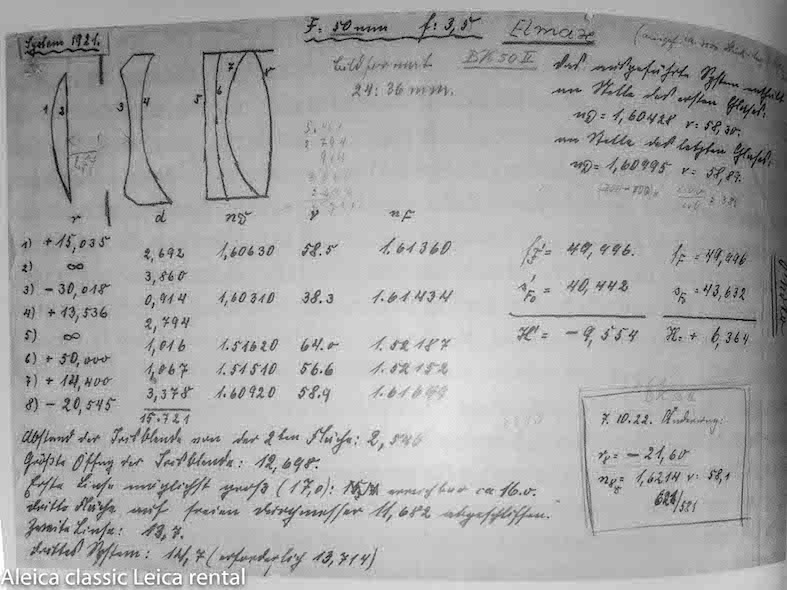 System 1921.
F: 50mm f: 3,5 Elmax
Bildformat
24:36 mm.
BK 50 II
das ausgeführte System enthält
an Stelle des ersten Glases:
nD = 1,60428 v = 58,30.
an Stelle des letzten Glases:
nD = 1,60995 v = 58,89.
1 2 3 4 5 6 7 8
r d nD v nF
1) + 15,035
2,692 1,60630 58.5 1.61360
2) ∞
3,560
3) - 30,018
0,914 1,60310 38.3 1.61434
4) + 13,536
2,794
5) ∞
1,016 1.51620 64.0 1.52187
6) + 50,000
1,067 1.51510 56.6 1.52152
7) + 14,400
3,378 1.60920 58.9 1.61649
8) - 20,545
15.721
f'F = 49,996. fF = 49,996
s'F0 = 40,442 sF0 = 43,632
H' = - 9,554 H = + 6,364
7.10.22. Änderung:
r8 = - 21,60
nD8 = 1,6214 v: 58,1
Abstand der Irisblende von der 2ten Fläche: 2,546
Größte Öffng der Irisblende: 12,698.
Erste Linse möglichst groß (17,0): erreichbar ca 16.0.
dritte Fläche auf freien Durchmesser 11,682 abgeschliffen.
Zweite Linse: 13,7.
drittes System: 14,7 (erforderlich 13,714)
Aleica classic Leica rental